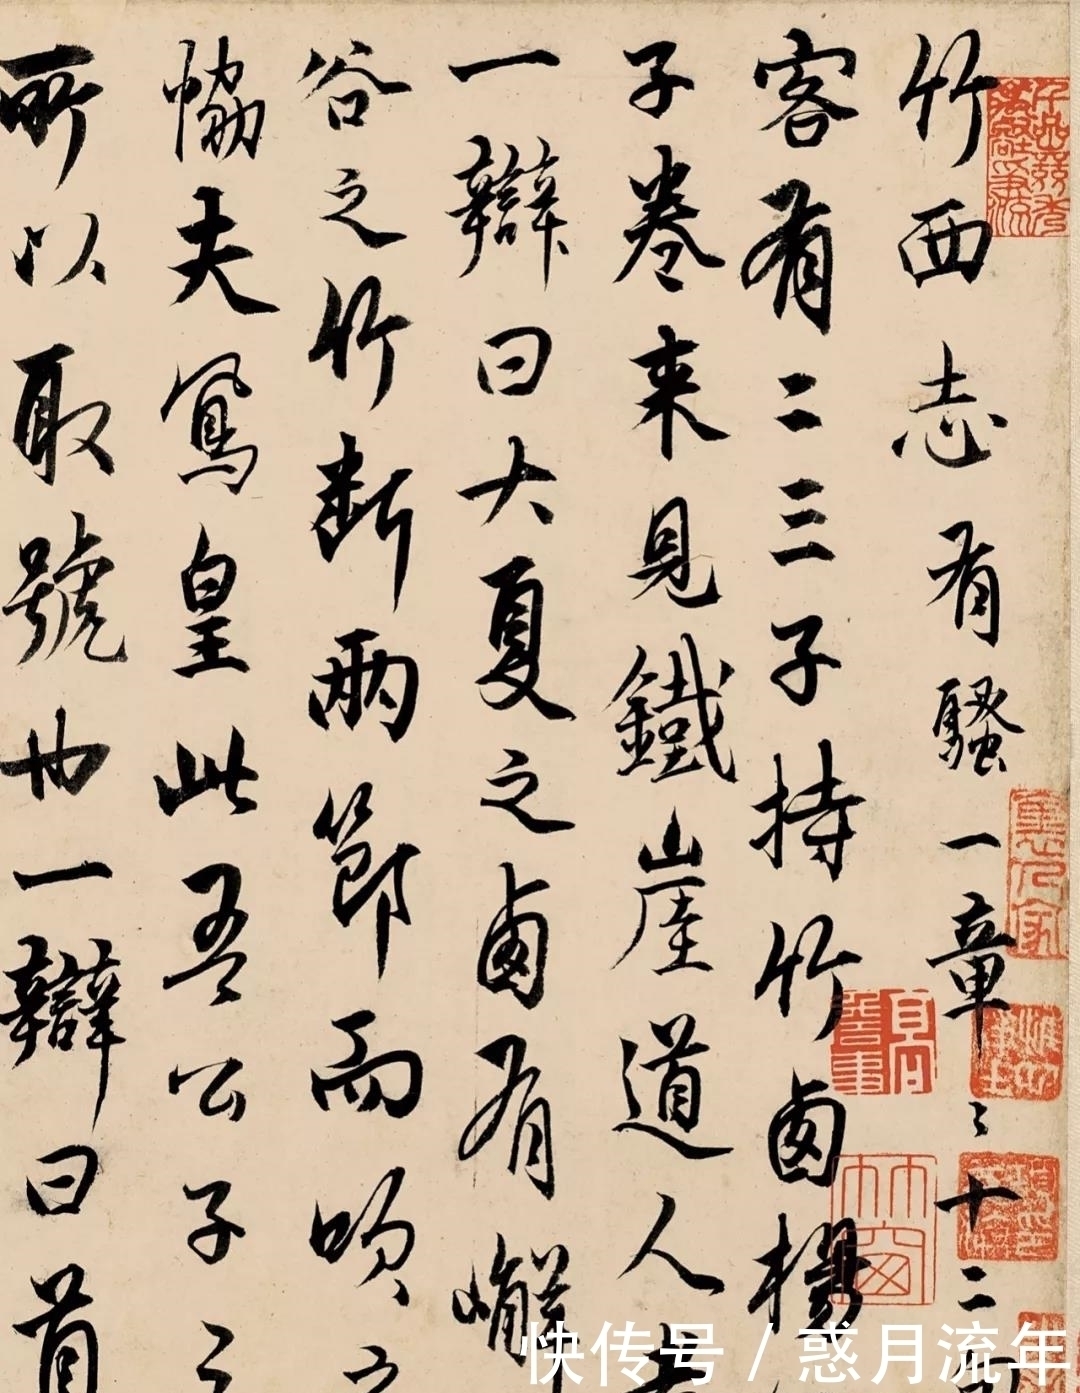 竹西志有騷一章〻十二句
客有二三子持竹西楊
子卷来見鐵崖道人
一辯曰大夏之西有嶰
谷之竹斷兩節而吹之
恊夫鳳皇此吾公子之
所以取號也一辯曰首
竹窗
快传号/惑月流年